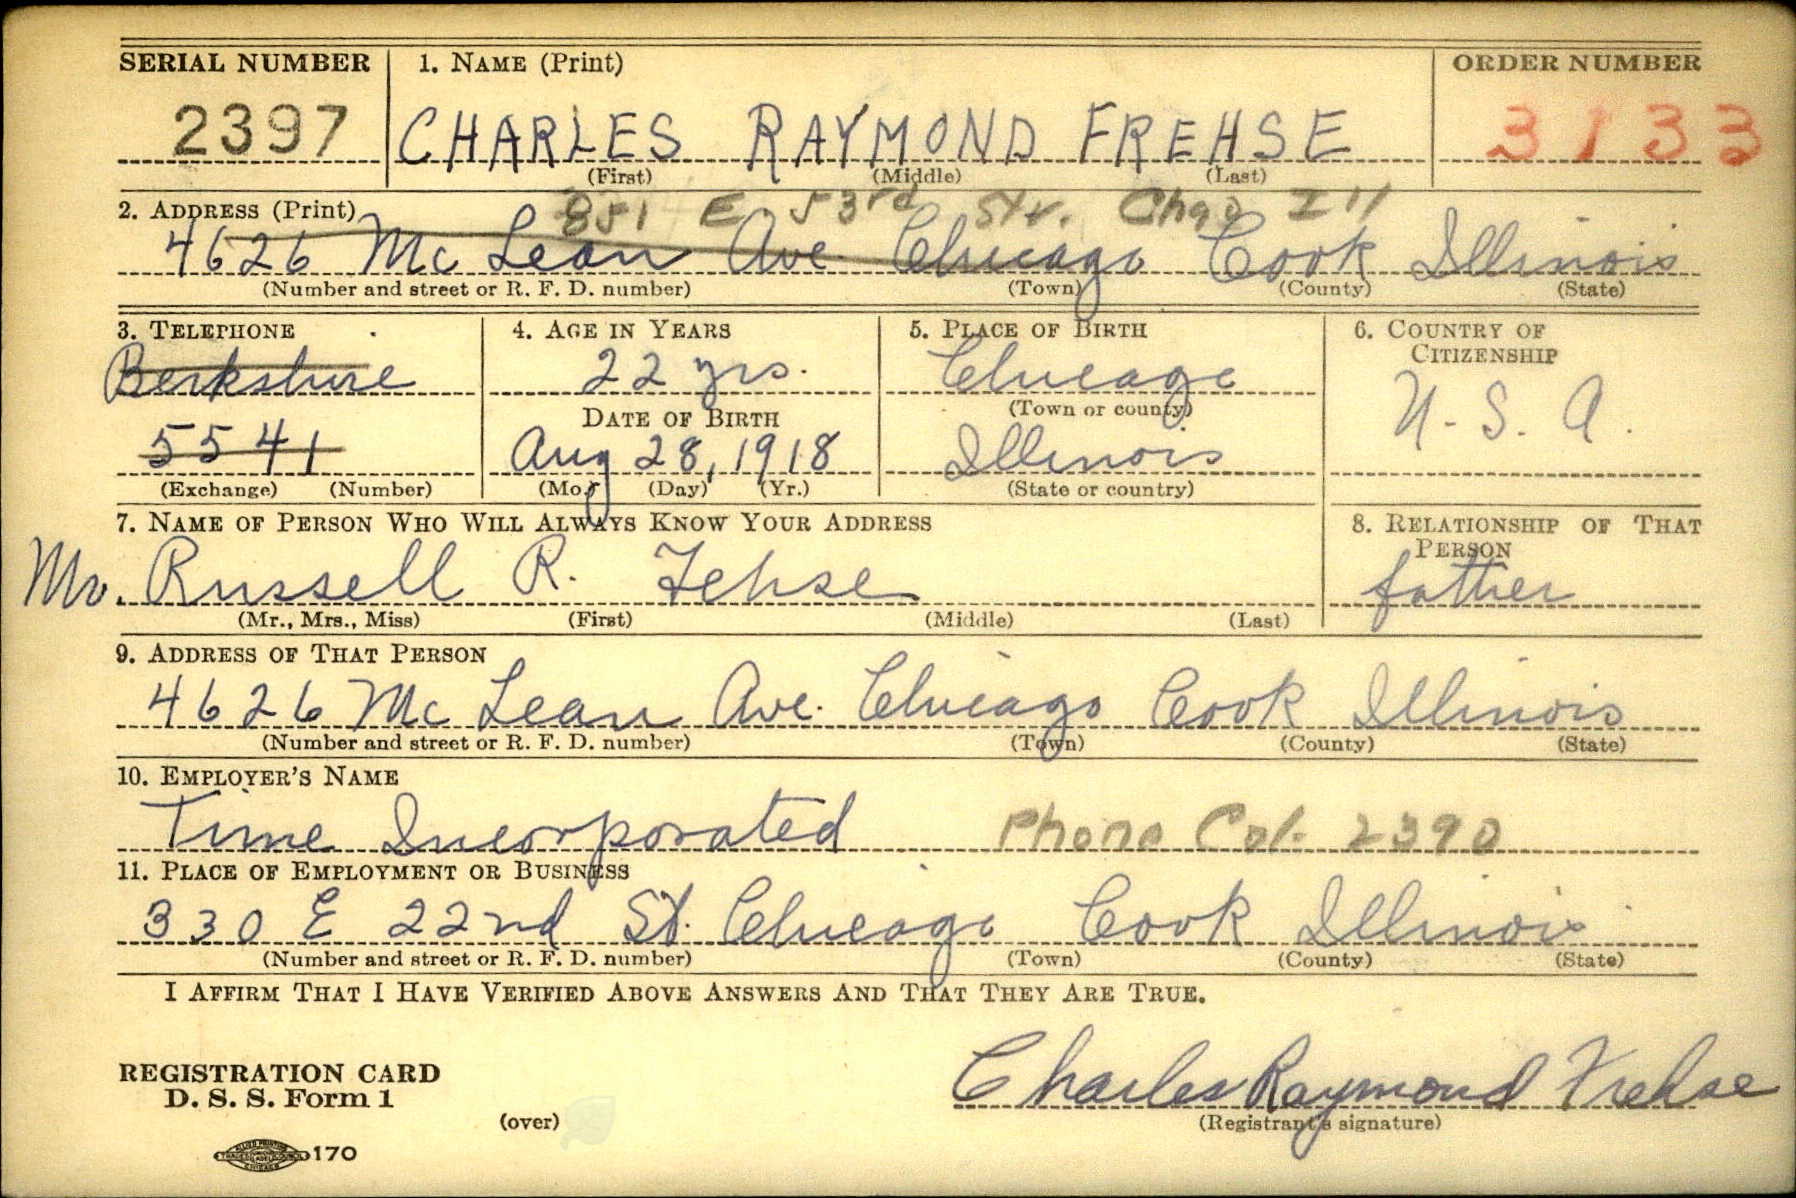 SERIAL NUMBER 1. NAME (Print) ORDER NUMBER
2397 CHARLES RAYMOND FREHSE 3133
(First) (Middle) (Last)
851 E 53rd Str. Chgo Ill
2. ADDRESS (Print)
4626 Mc Lean Ave. Chicago Cook Illinois
(Number and street or R. F. D. number) (Town) (County) (State)
3. TELEPHONE 4. AGE IN YEARS 5. PLACE OF BIRTH 6. COUNTRY OF
CITIZENSHIP
Berkshire 22 yrs. Chicago U. S. A.
DATE OF BIRTH (Town or county)
5541 Aug 28, 1918 Illinois
(Exchange) (Number) (Mo.) (Day) (Yr.) (State or country)
7. NAME OF PERSON WHO WILL ALWAYS KNOW YOUR ADDRESS 8. RELATIONSHIP OF THAT
PERSON
Mr. Russell R. Fehse father
(Mr., Mrs., Miss) (First) (Middle) (Last)
9. ADDRESS OF THAT PERSON
4626 Mc Lean Ave. Chicago Cook Illinois
(Number and street or R. F. D. number) (Town) (County) (State)
10. EMPLOYER'S NAME
Time Incorporated Phone Cal. 2390
11. PLACE OF EMPLOYMENT OR BUSINESS
330 E 22nd St. Chicago Cook Illinois
(Number and street or R. F. D. number) (Town) (County) (State)
I AFFIRM THAT I HAVE VERIFIED ABOVE ANSWERS AND THAT THEY ARE TRUE.
Charles Raymond Frehse
REGISTRATION CARD
D. S. S. Form 1
(over) (Registrant's signature)
170